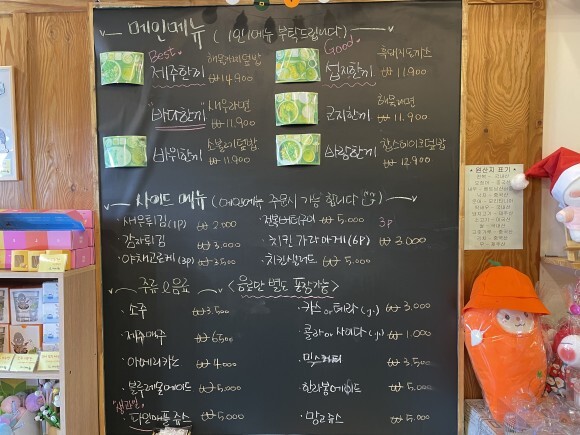 메인메뉴 (1인1메뉴 부탁드립니다)
Best
제주한끼 해물카레덮밥 ₩14,900
Good
섭지한끼 흑돼지돈까스 ₩11,900
"바다한끼" 새우라면 ₩11,900
코지한끼 해물라면 ₩11,900
바위한끼 소불고기덮밥 ₩11,900
바람한끼 찹스테이크덮밥 ₩12,900
사이드 메뉴 (메인메뉴 주문시 가능합니다)
·새우튀김(1P) ₩2,000
·전복버터구이 ₩5,000 3p
·감자튀김 ₩3,000
·치킨 가라아게(6P) ₩3,000
·야채고로케(3P) ₩3,500
·치킨샐러드 ₩5,000
주류&음료 <음료만 별도 포장가능>
·소주
·카스 or 테라 ₩3,000
·제주맥주 ₩6,500
·콜라 or 사이다 ₩1,000
·아메리카노 ₩4,000
·믹스커피 ₩3,500
·블루레몬에이드 ₩5,000
·한라봉에이드 ₩5,000
"생과일"
·파인애플쥬스 ₩5,000
·망고쥬스 ₩5,000
* 원산지 표기 *